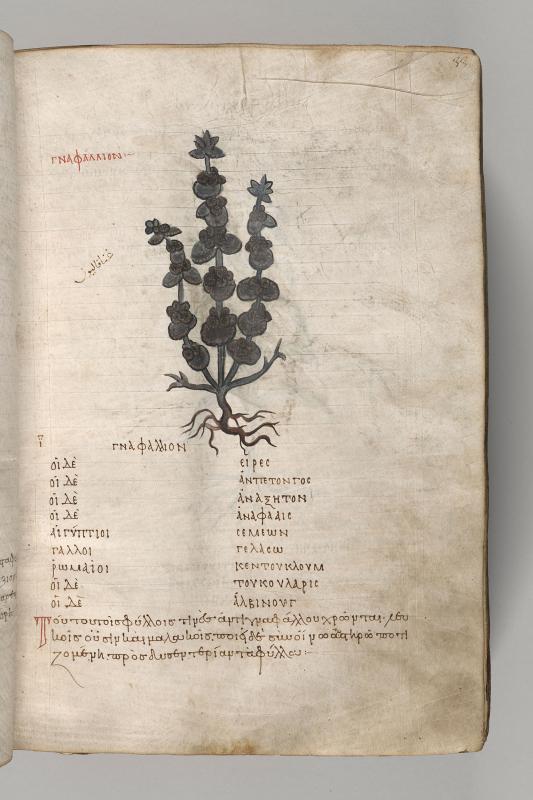 88
ΓΝΑΦΑΛΛΙΟΝ:-
غنافاليون
ΓΝΑΦΑΛΛΙΟΝ
ὁι Δὲ ειρες
ὁι Δὲ ἀντπετονγος
ὁι Δὲ ἀναξητον
ὁι Δὲ ἀναφαλις
ἀιγύπτιοι σεμεων
γαλλοι γελασω
ῥωμαῖοι κεντουκλουμ
ὁι Δὲ τουκουλαρις
ὁι Δὲ ἀλβινουγ
Τούτου τοῖς φύλλοις τινὲς ἀντὶ γναφάλλου χρῶνται λευ
κοῖς οὖσιν καὶ μαλακοῖς ποιεῖ δὲ σὺν οἴνω αὐστηρῶ ποτι
ζομένη πρὸς δυσεντερίαν τὰ φύλλα:-